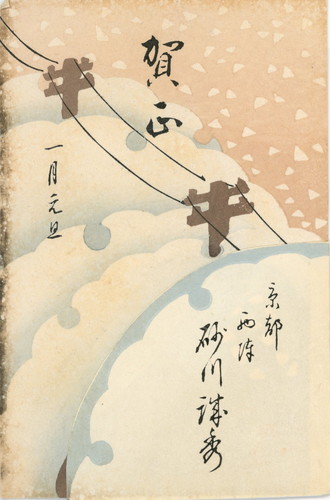 賀正
一月元旦
京都
西陣
砂川